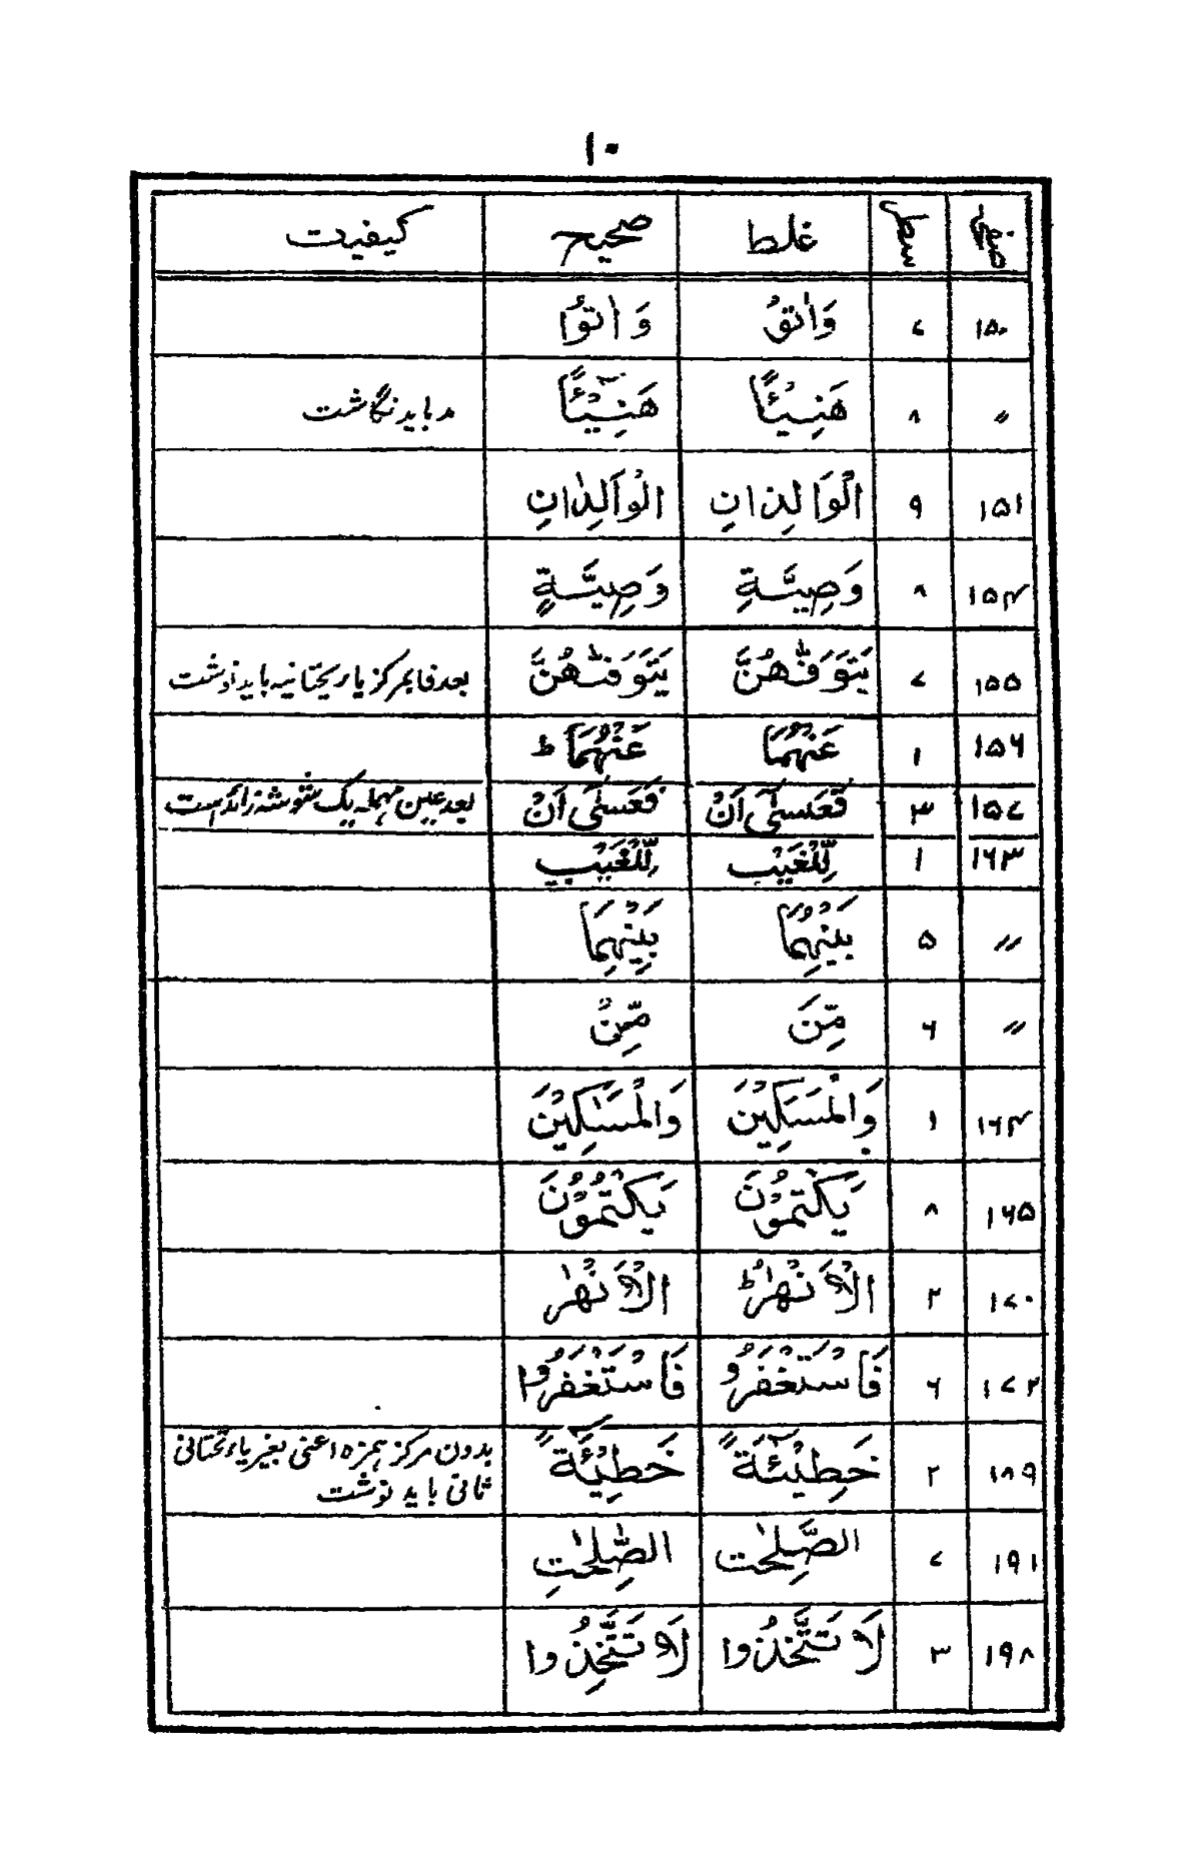 ۱۰
صفحہ سطر غلط صحیح کیفیت
۱۵۰ ۷ وَاٰتقُ وَ اٰتوُا
〃 ۸ هَنِيْئًا هَنِيْٓئًا مد باید نگاشت
۱۵۱ ۹ الْوَالِدٰانِ الْوَالِدٰانِ
۱۵۴ ۸ وَصِيَّةِ وَصِيَّةٍ
۱۵۵ ۷ يَتَوَفّٰهُنَّ يَتَوَفّٰىهُنَّ بعد فا بمرکز یاء تحتانیہ باید نوشت
۱۵۶ ۱ عَنْهُمَا عَنْهُمَا ط
۱۵۷ ۳ فَعَسٰۤى اَنْ فَعَسٰۤى اَنْ بعد عین مہملہ یک شوشہ زائد است
۱۶۳ ۱ لِّلْغَيْبِ لِّلْغَيْبِ
〃 ۵ بَيْنِهُمَا بَيْنِهِمَا
〃 ۶ مِّنَ مِّنْ
۱۶۴ ۱ وَالْمَسَكِيْنَ وَالْمَسٰكِيْنَ
۱۶۵ ۸ يَكْتمُوْنَ يَكْتُمُوْنَ
۱۷۰ ۲ الْاَنْهٰرُ ط الْاَنْهٰر
۱۷۲ ۶ فَاسْتَغْفَرُو فَاسْتَغْفَرُوا
۱۸۹ ۲ خَطِيْٓئَةً خَطِيْٓئَةً بدون مرکز ہمزہ اعنی بغیر یاء تحتانی
ثانی باید نوشت
۱۹۱ ۷ الصّٰلِحٰت الصّٰلِحٰتِ
۱۹۸ ۳ لَا تَتَّخذُوا لَا تَتَّخِذُوا